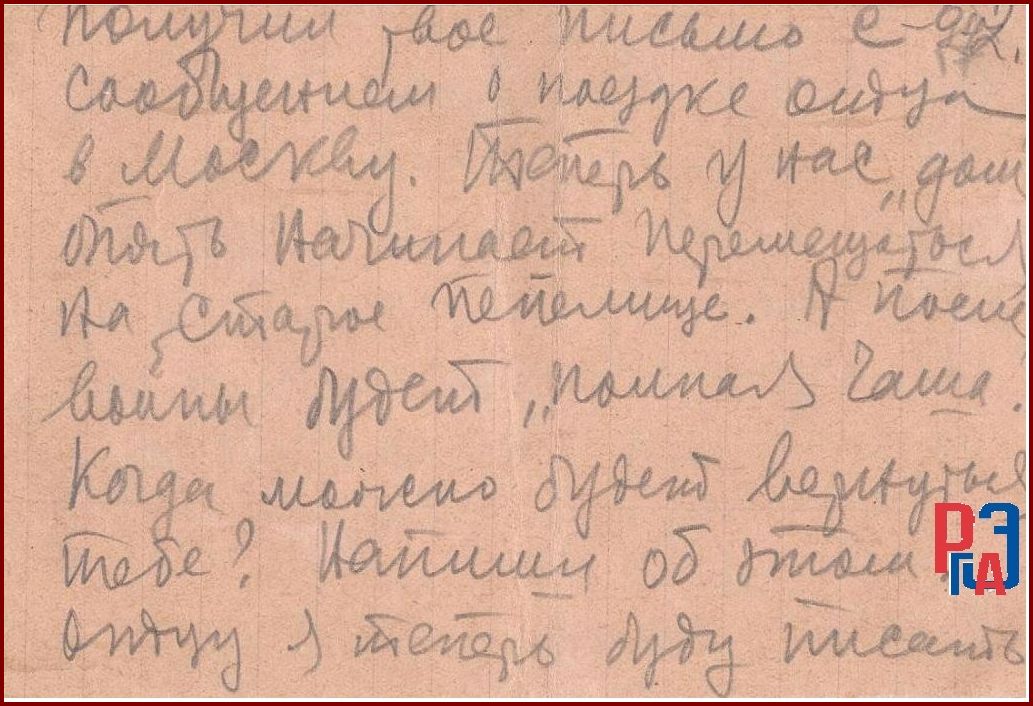 получил твое письмо с
сообщением о поездке отца
в Москву. Теперь у нас „дом
опять начинает перемещаться
на старое пепелище. А после
войны будет „полная чаша.
Когда можно будет вернуться
тебе? Напиши об этом.
Отцу я теперь буду писать
РГАЭ